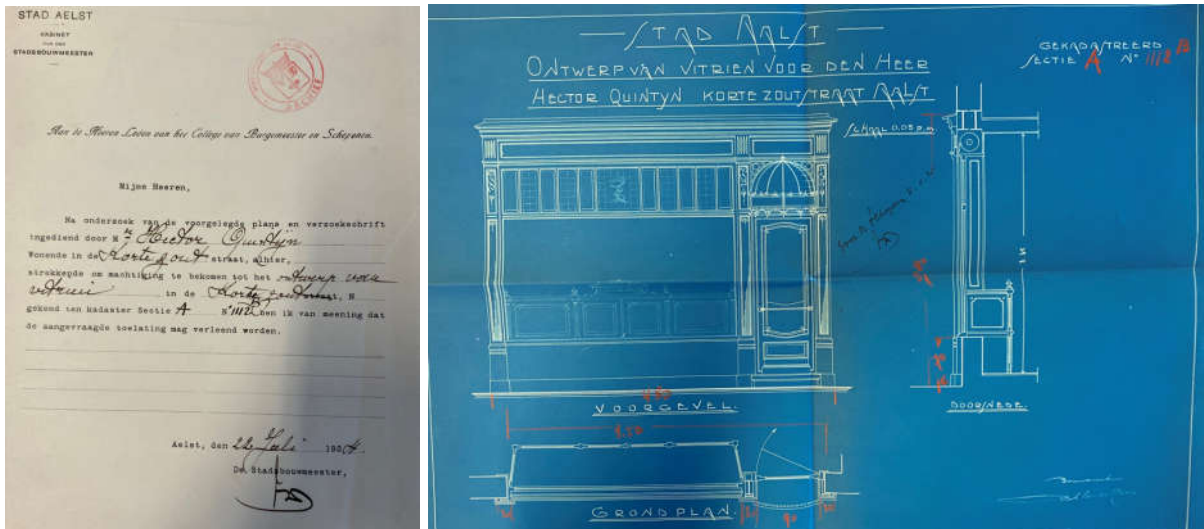 STAD AELST
KABINET
VAN DEN
STADSBOUWMEESTER
Aan de Heeren Leden van het College van Burgemeester en Schepenen.
Mijne Heeren,
Na onderzoek van de voorgelegde plans en verzoekschrift
ingediend door Mr Hector Quintijn
Wonende in de Korte zout straat, alhier,
strekkende om machtiging te bekomen tot het ontwerp voor
vitrien in de Korte zoutstraat, N
gekend ten kadaster Sectie A N° 1112 ben ik van meening dat
de aangevraagde toelating mag verleend worden.
Aelst, den 22 Juli 1924
De Stadsbouwmeester,
STAD AALST
ONTWERP VAN VITRIEN VOOR DEN HEER
HECTOR QUINTYN KORTE ZOUTSTRAAT AALST
GEKADASTREERD
SECTIE A N° 1112
SCHAAL 0.05 p.m.
VOORGEVEL.
DOORSNEDE.
4.50
GRONDPLAN.
90